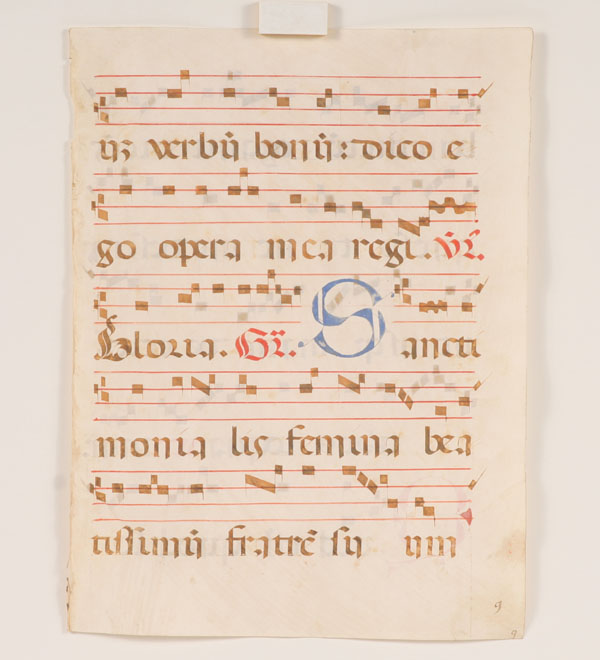 uʒ verbū bonū: dico e
go opera mea regi. Vr̃.
Gloria. Gr̃. Sancti
monia lis femina bea
tissimū fratrē su um
9
9